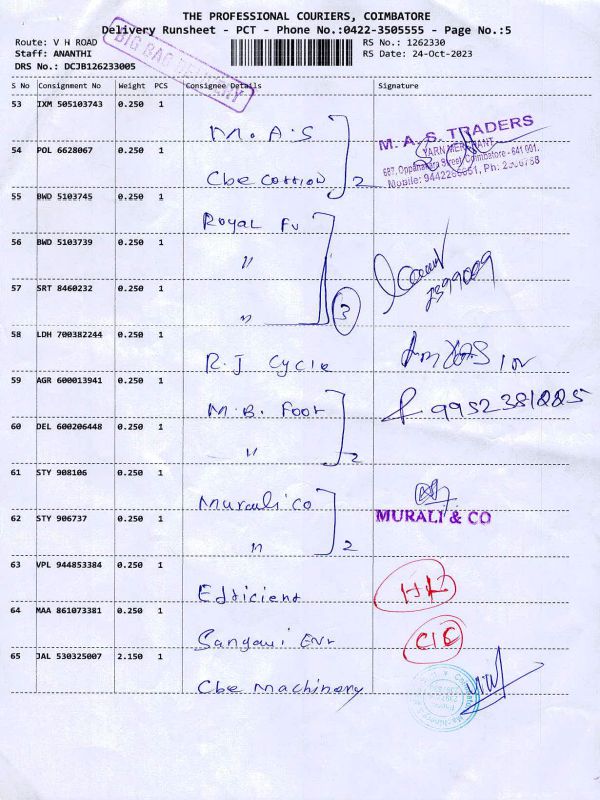 THE PROFESSIONAL COURIERS, COIMBATORE
Delivery Runsheet - PCT - Phone No.:0422-3505555 - Page No.:5
Route: V H ROAD
RS No.: 1262330
Staff: ANANTHI
RS Date: 24-Oct-2023
DRS No.: DCJB126233005
BIG BAG DELIVERY
S No Consignment No Weight PCS Consignee Details Signature
53 IXM 505103743 0.250 1 M. A. S
M. A. S. TRADERS
YARN MERCHANT
687, Oppanakara Street, Coimbatore - 641 001.
54 POL 6628067 0.250 1 Cbe Cottion 2
55 BWD 5103745 0.250 1 Royal Fu
56 BWD 5103739 0.250 1 "
57 SRT 8460232 0.250 1 " 3
58 LDH 700382244 0.250 1 R. J Cycle
59 AGR 600013941 0.250 1 M. B. Foot
60 DEL 600206448 0.250 1 " 2
61 STY 908106 0.250 1 Murali Co
62 STY 906737 0.250 1 " 2
MURALI & CO
63 VPL 944853384 0.250 1 Efficient
64 MAA 861073381 0.250 1
65 JAL 530325007 2.150 1 Cbe Machinery